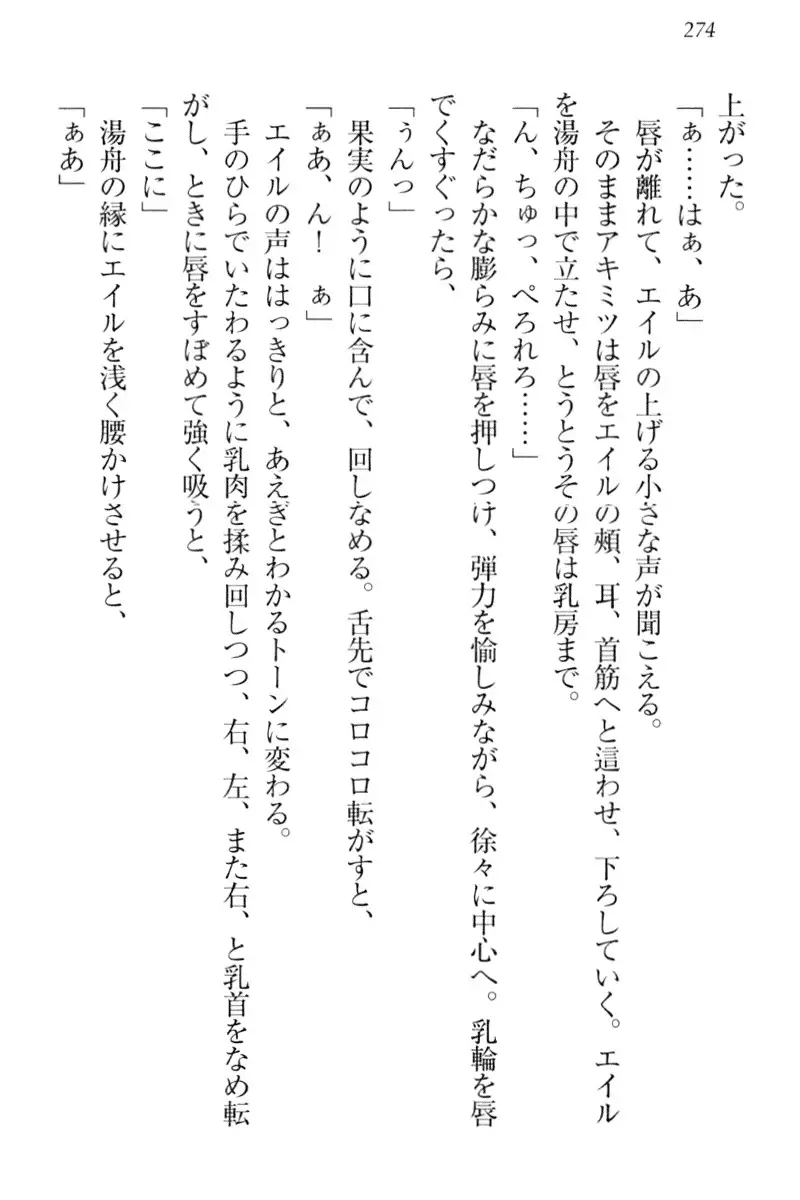 274
上がった。
「ぁ……はぁ、あ」
唇が離れて、エイルの上げる小さな声が聞こえる。
そのままアキミツは唇をエイルの頰、耳、首筋へと這わせ、下ろしていく。エイル
を湯舟の中で立たせ、とうとうその唇は乳房まで。
「ん、ちゅっ、ぺろれろ……」
なだらかな膨らみに唇を押しつけ、弾力を愉しみながら、徐々に中心へ。乳輪を唇
でくすぐったら、
「ぅんっ」
果実のように口に含んで、回しなめる。舌先でコロコロ転がすと、
「ぁあ、ん！　ぁ」
エイルの声ははっきりと、あえぎとわかるトーンに変わる。
手のひらでいたわるように乳肉を揉み回しつつ、右、左、また右、と乳首をなめ転
がし、ときに唇をすぼめて強く吸うと、
「ここに」
湯舟の縁にエイルを浅く腰かけさせると、
「ぁあ」